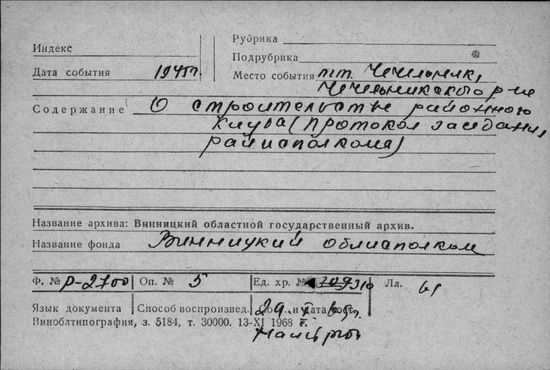 Рубрика
Индекс
Подрубрика
Дата события 1945г.
Место события пгт. Чечельник,
Чечельникского р-на
Содержание О строительстве районного
клуба (протокол заседания,
райисполкома)
Название архива: Винницкий областной государственный архив.
Название фонда Винницкий облисполком
Ф. № р-2700 Оп. № 5 Ед. хр. № 310 Лл. 61
Язык документа Способ воспроизвед. и дата сост.
29.
Виноблтипография, з. 5184, т. 30000. 13-XI 1968 г.